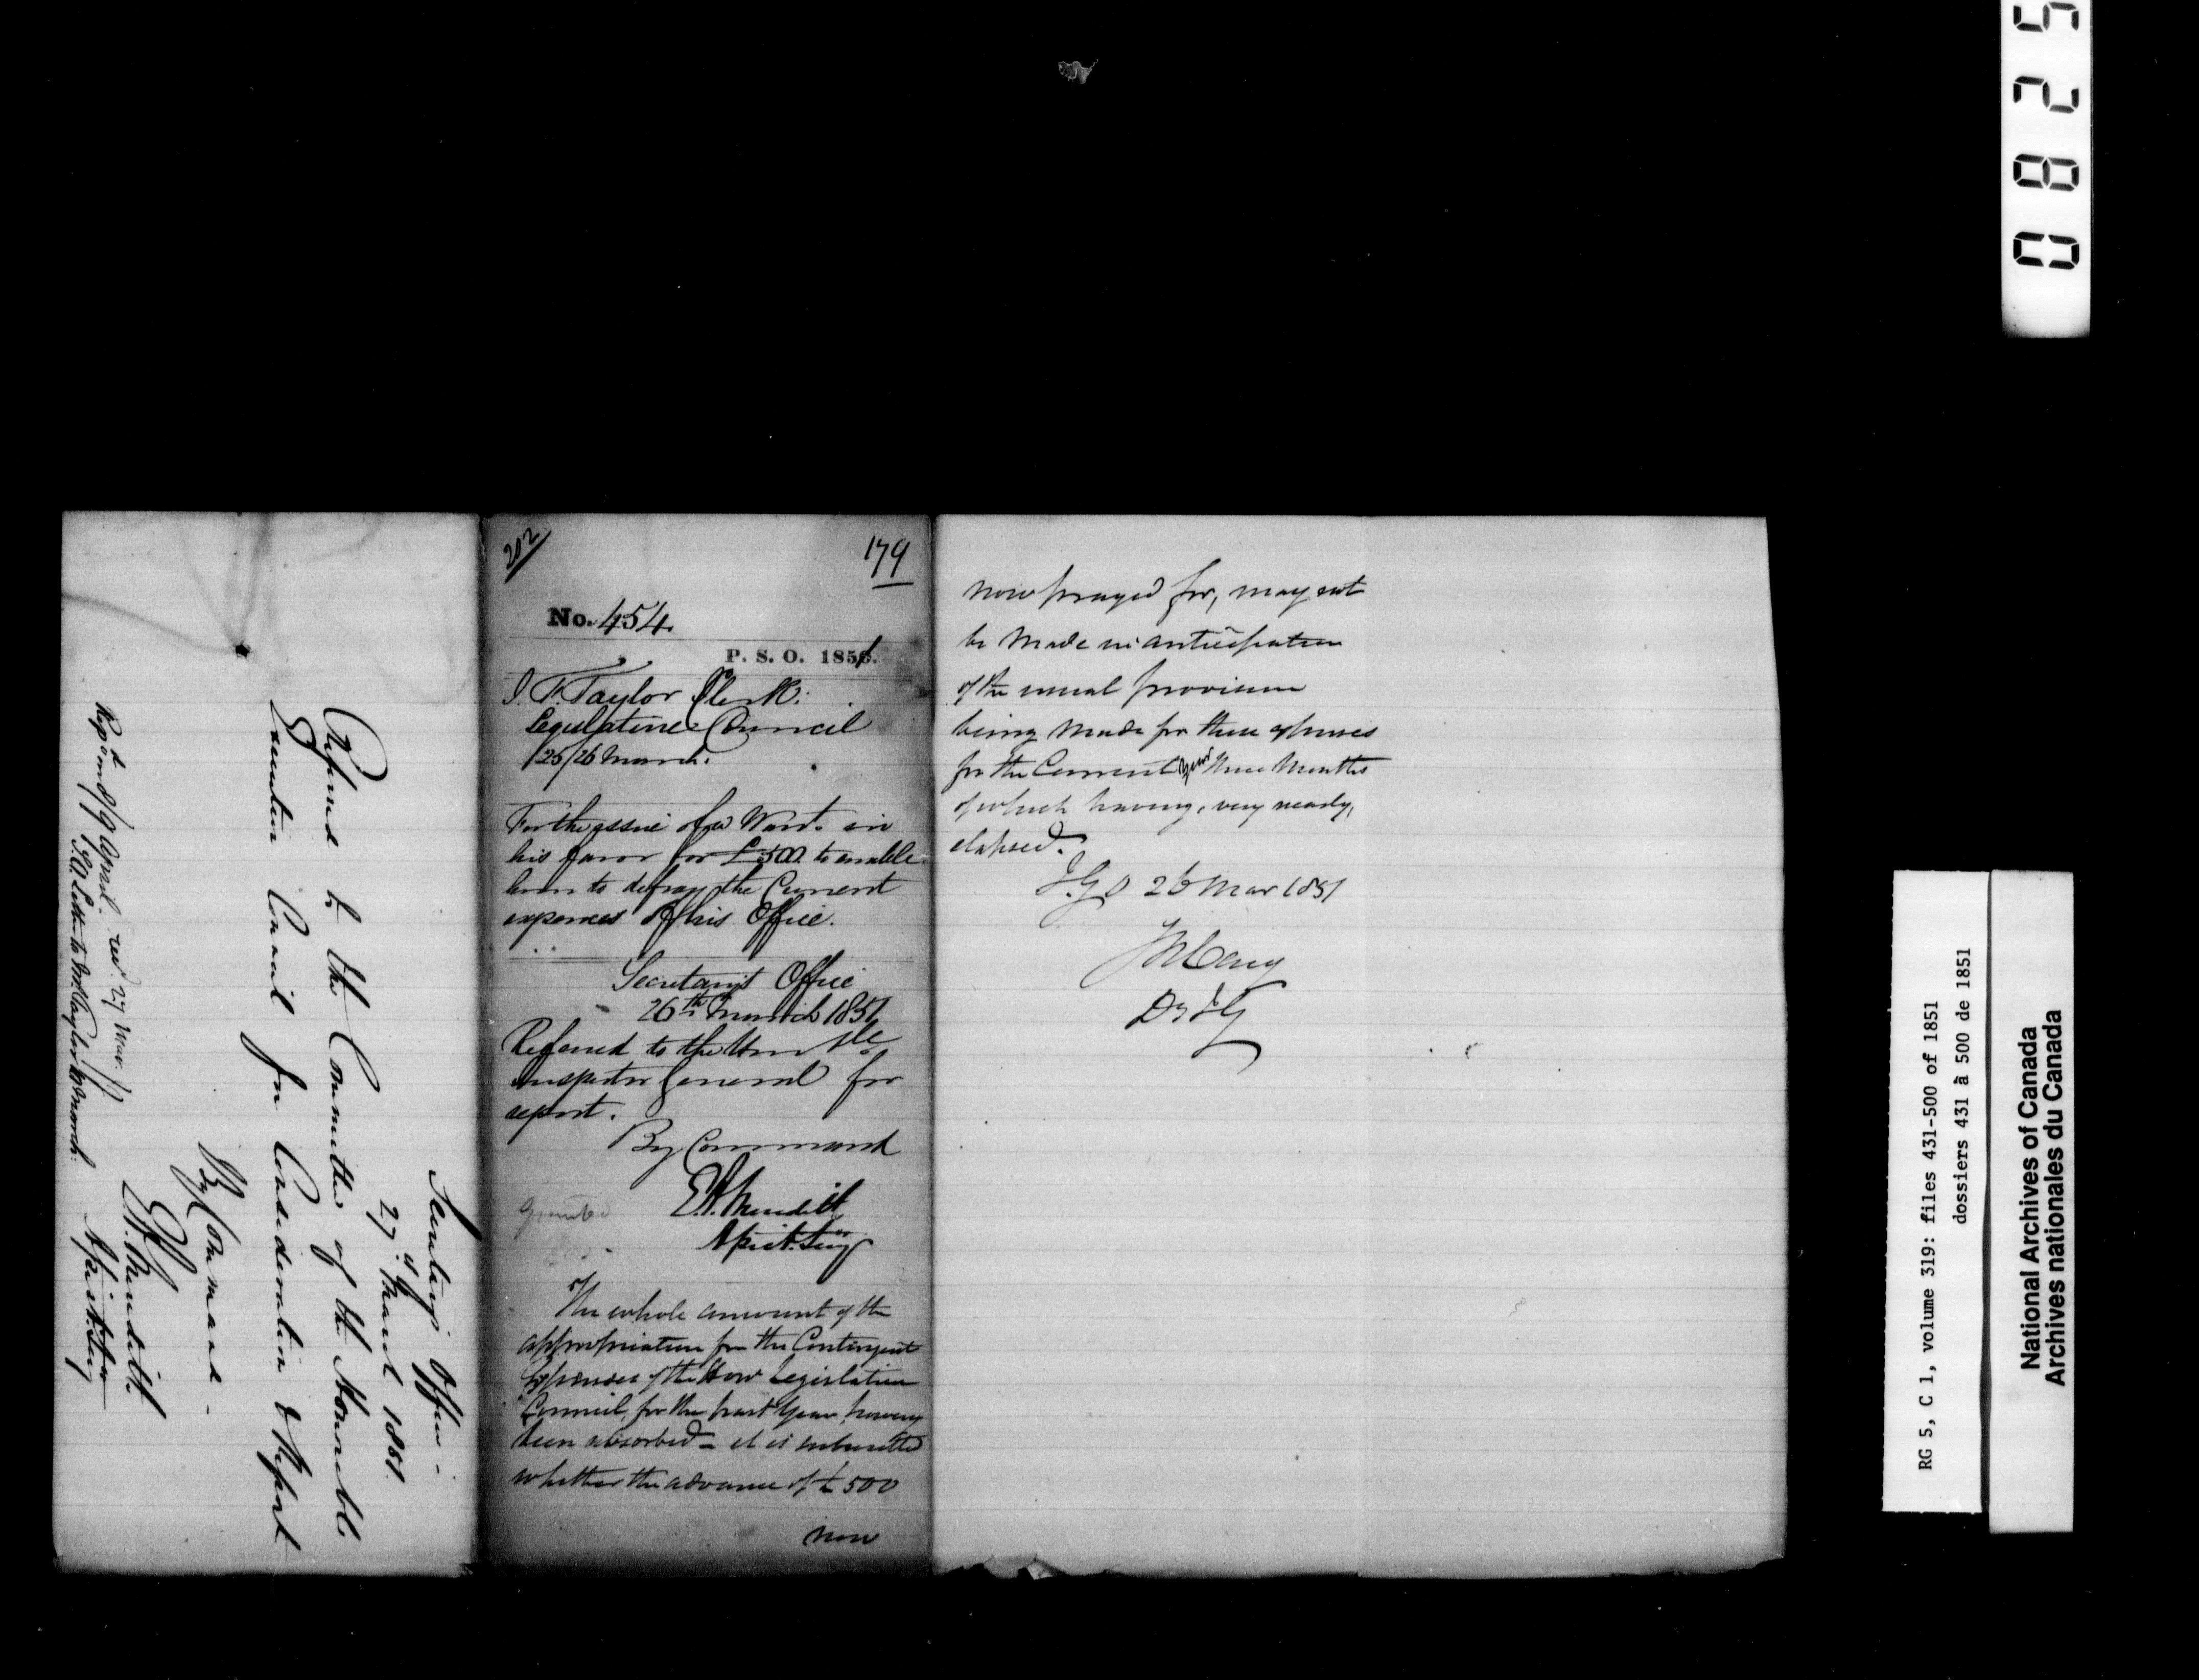 202
179
No. 454
P. S. O. 1851.
J. F. Taylor Clerk
Legislative Council
25/26 March.
For the issue of a Warrt. in
his favor for £500 to enable
him to defray the Current
expenses of his Office.
Secretary's Office
26th March 1851
Referred to the Honble
Inspector General for
report.
By Command
E.A. Meredith
Assist. Secy
Granted
The whole amount of the
appropriation for the Contingent
Expenses of the Hon Legislative
Council, for the past year, having
been absorbed - it is submitted
whether the advance of £500
now
now prayed for, may not
be made in anticipation
of the usual provision
being made for these expenses
for the Current year three months
of which having, very nearly,
elapsed.
I.G.O 26 Mar 1851
J. W. Cary
D. I G
Secretary's Office -
27th March 1851.
Referred to the Committee of the Honorable
Executive Council for Consideration & Report
By Command -
E.A. Meredith.
Assist. Secy
Rept. in C 8/9 April. recd. 27 Mar.
Letter to Mr. Taylor
0825
RG 5, C 1, volume 319: files 431-500 of 1851
dossiers 431 à 500 de 1851
National Archives of Canada
Archives nationales du Canada